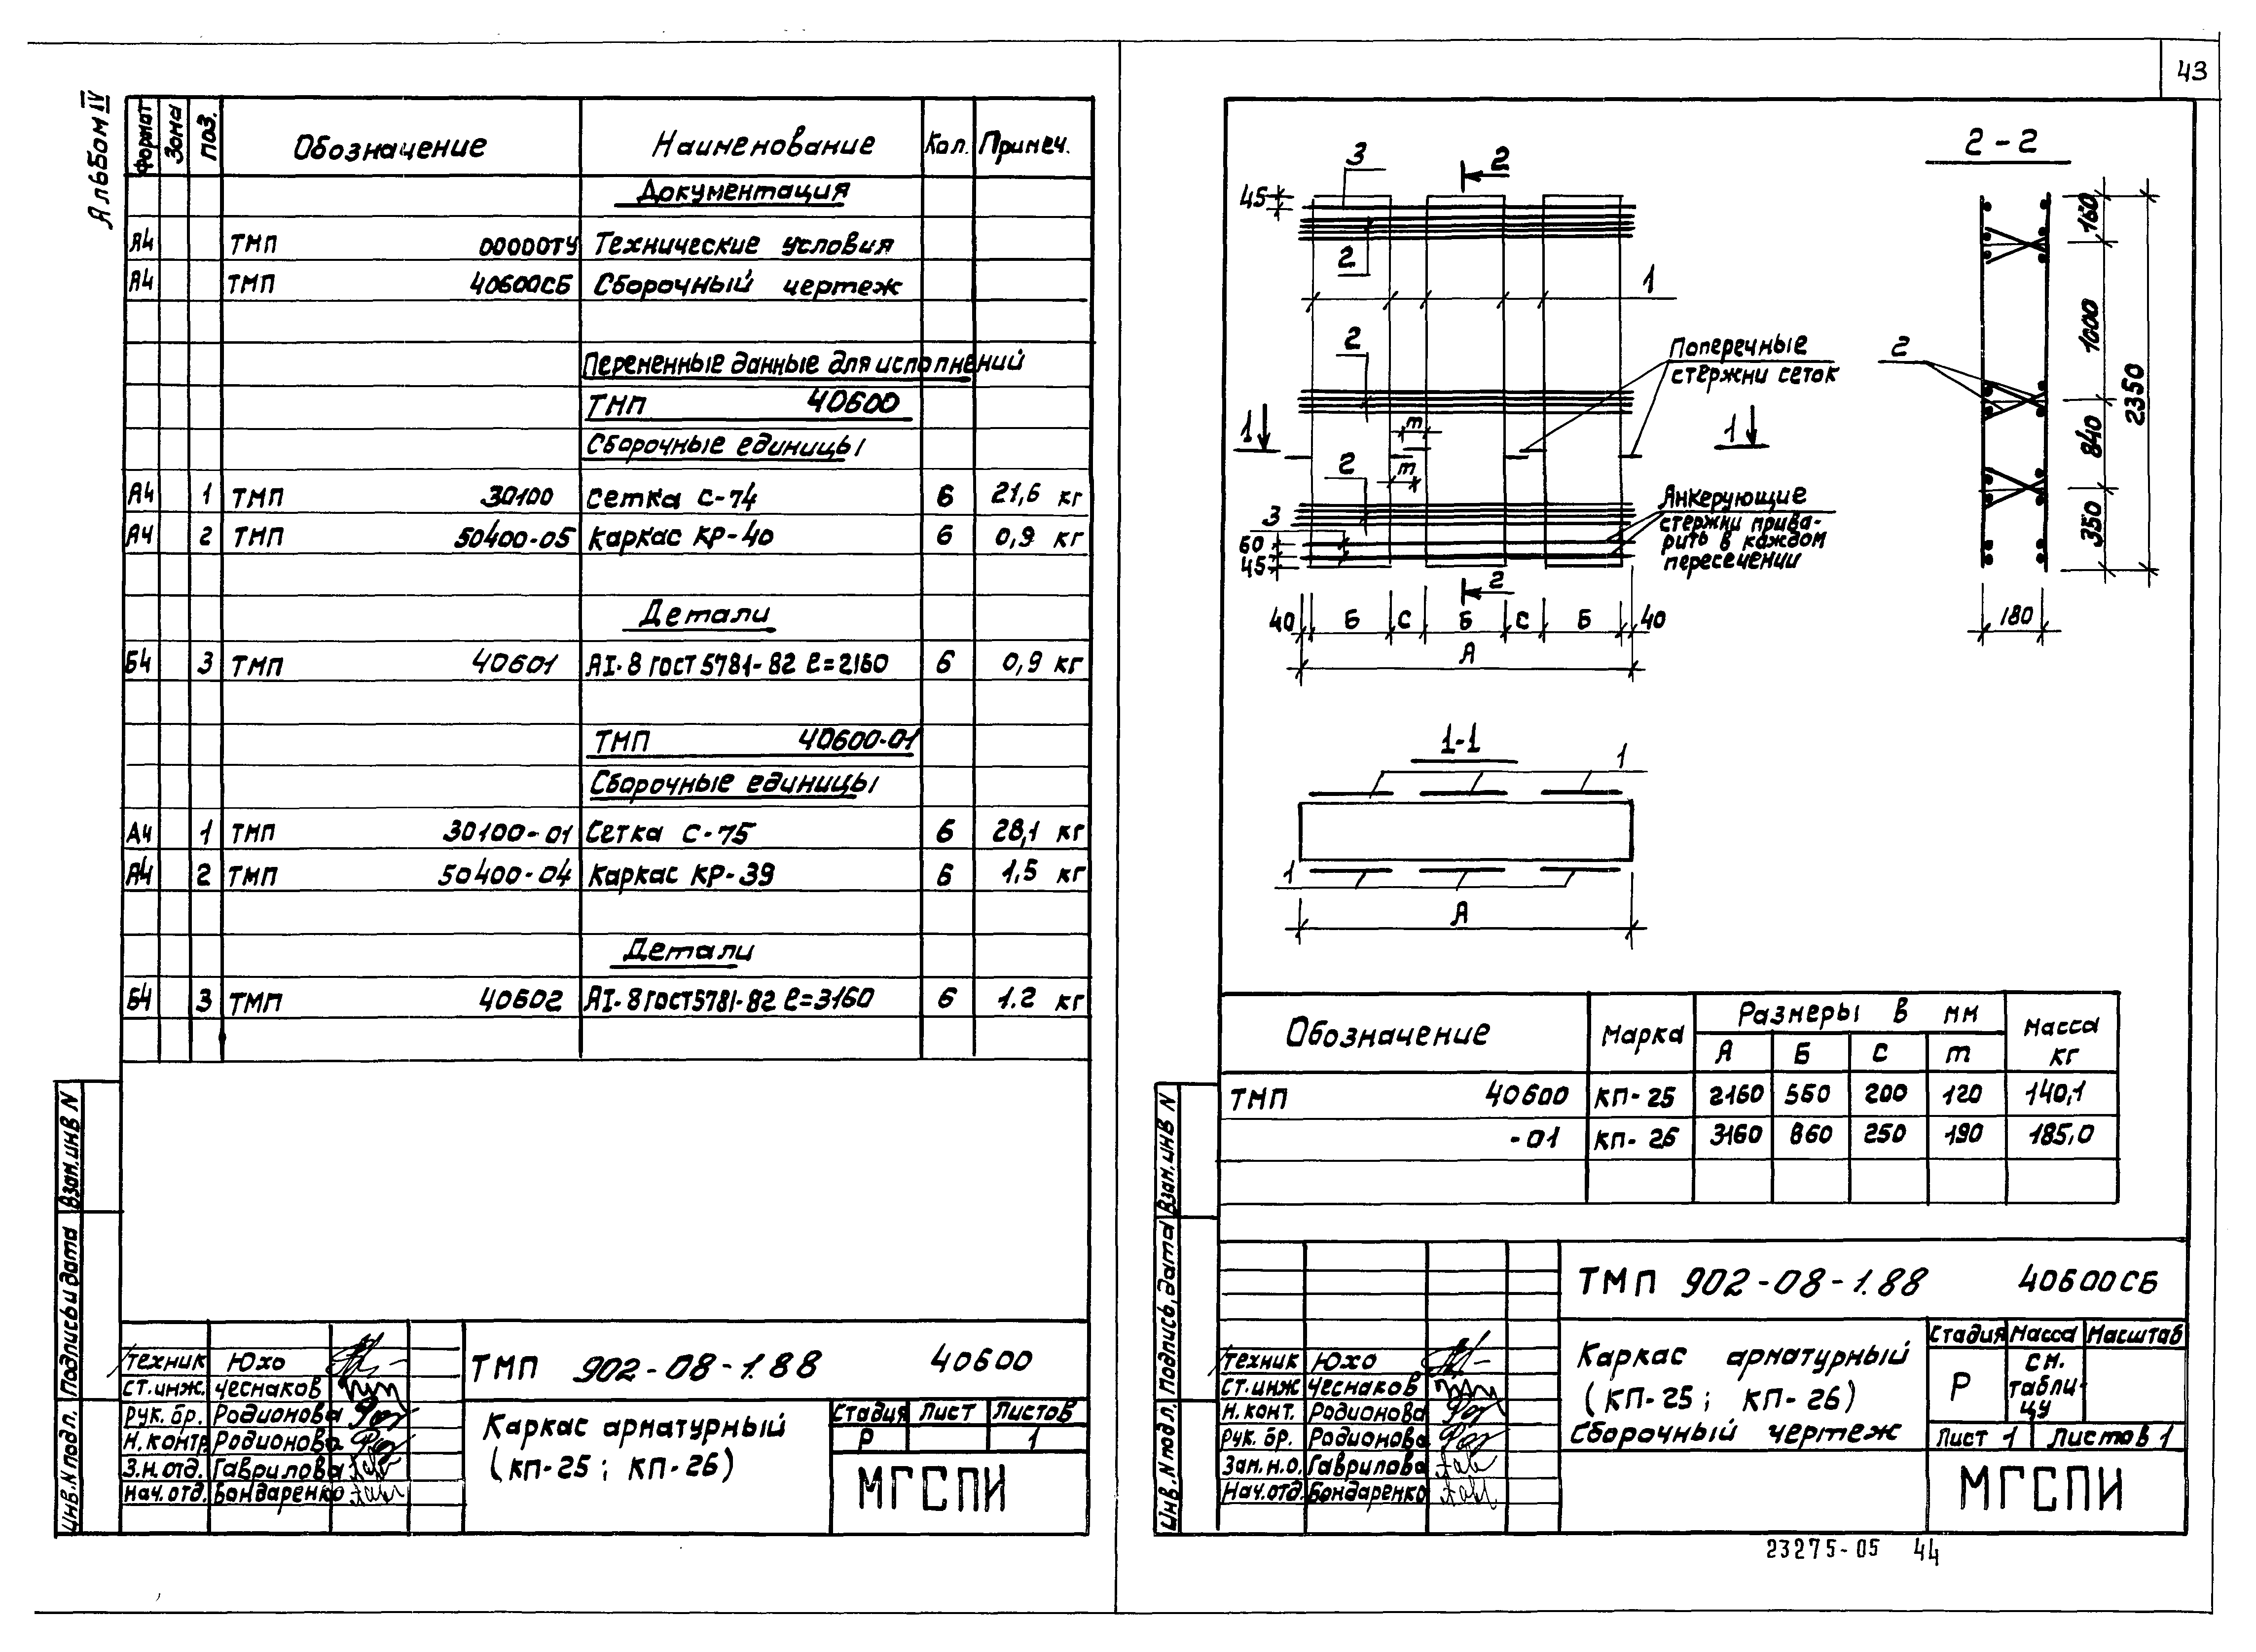 43
Альбом IV
Формат Зона Поз. Обозначение Наименование Кол. Примеч.
Документация
А4 ТМП 00000ТУ Технические условия
А4 ТМП 40600СБ Сборочный чертеж
Переменные данные для исполнений
ТМП 40600
Сборочные единицы
А4 1 ТМП 30100 Сетка С-74 6 21,6 кг
А4 2 ТМП 50400-05 Каркас КР-40 6 0,9 кг
Детали
Б4 3 ТМП 40601 АI-8 ГОСТ 5781-82 ℓ=2160 6 0,9 кг
ТМП 40600-01
Сборочные единицы
А4 1 ТМП 30100-01 Сетка С-75 6 28,1 кг
А4 2 ТМП 50400-04 Каркас КР-39 6 1,5 кг
Детали
Б4 3 ТМП 40602 АI-8 ГОСТ 5781-82 ℓ=3160 6 1.2 кг
Взам.инв N
Подпись и дата
Инв.N подл.
Техник Юхо
Ст.инж. Чеснаков
Рук. бр. Родионова
Н.контр Родионова
З.н.отд. Гаврилова
Нач.отд. Бондаренко
ТМП 902-08-1.88 40600
Каркас арматурный
(КП-25; КП-26)
Стадия Лист Листов
Р 1
МГСПИ
3 2
45
2
1
2
Поперечные
стержни сеток
m
1 1
2
m
3
60
45
Анкерующие
стержни прива-
рить в каждом
пересечении
2
40 Б С Б С Б 40
А
2-2
160
1000
840
350
2350
2
180
1-1
1
1
А
Обозначение Марка Размеры в мм Масса кг
А Б С m
ТМП 40600 КП-25 2160 560 200 120 140,1
-01 КП-26 3160 860 250 190 185,0
Взам.инв N
Подпись, дата
Инв.N подл.
ТМП 902-08-1.88 40600СБ
Техник Юхо
Ст.инж Чеснаков
Н.конт. Родионова
Рук. бр. Родионова
Зам.н.о. Гаврилова
Нач.отд. Бондаренко
Каркас арматурный
(КП-25; КП-26)
Сборочный чертеж
Стадия Масса Масштаб
Р см. табли-цу
Лист 1 Листов 1
МГСПИ
23275-05 44